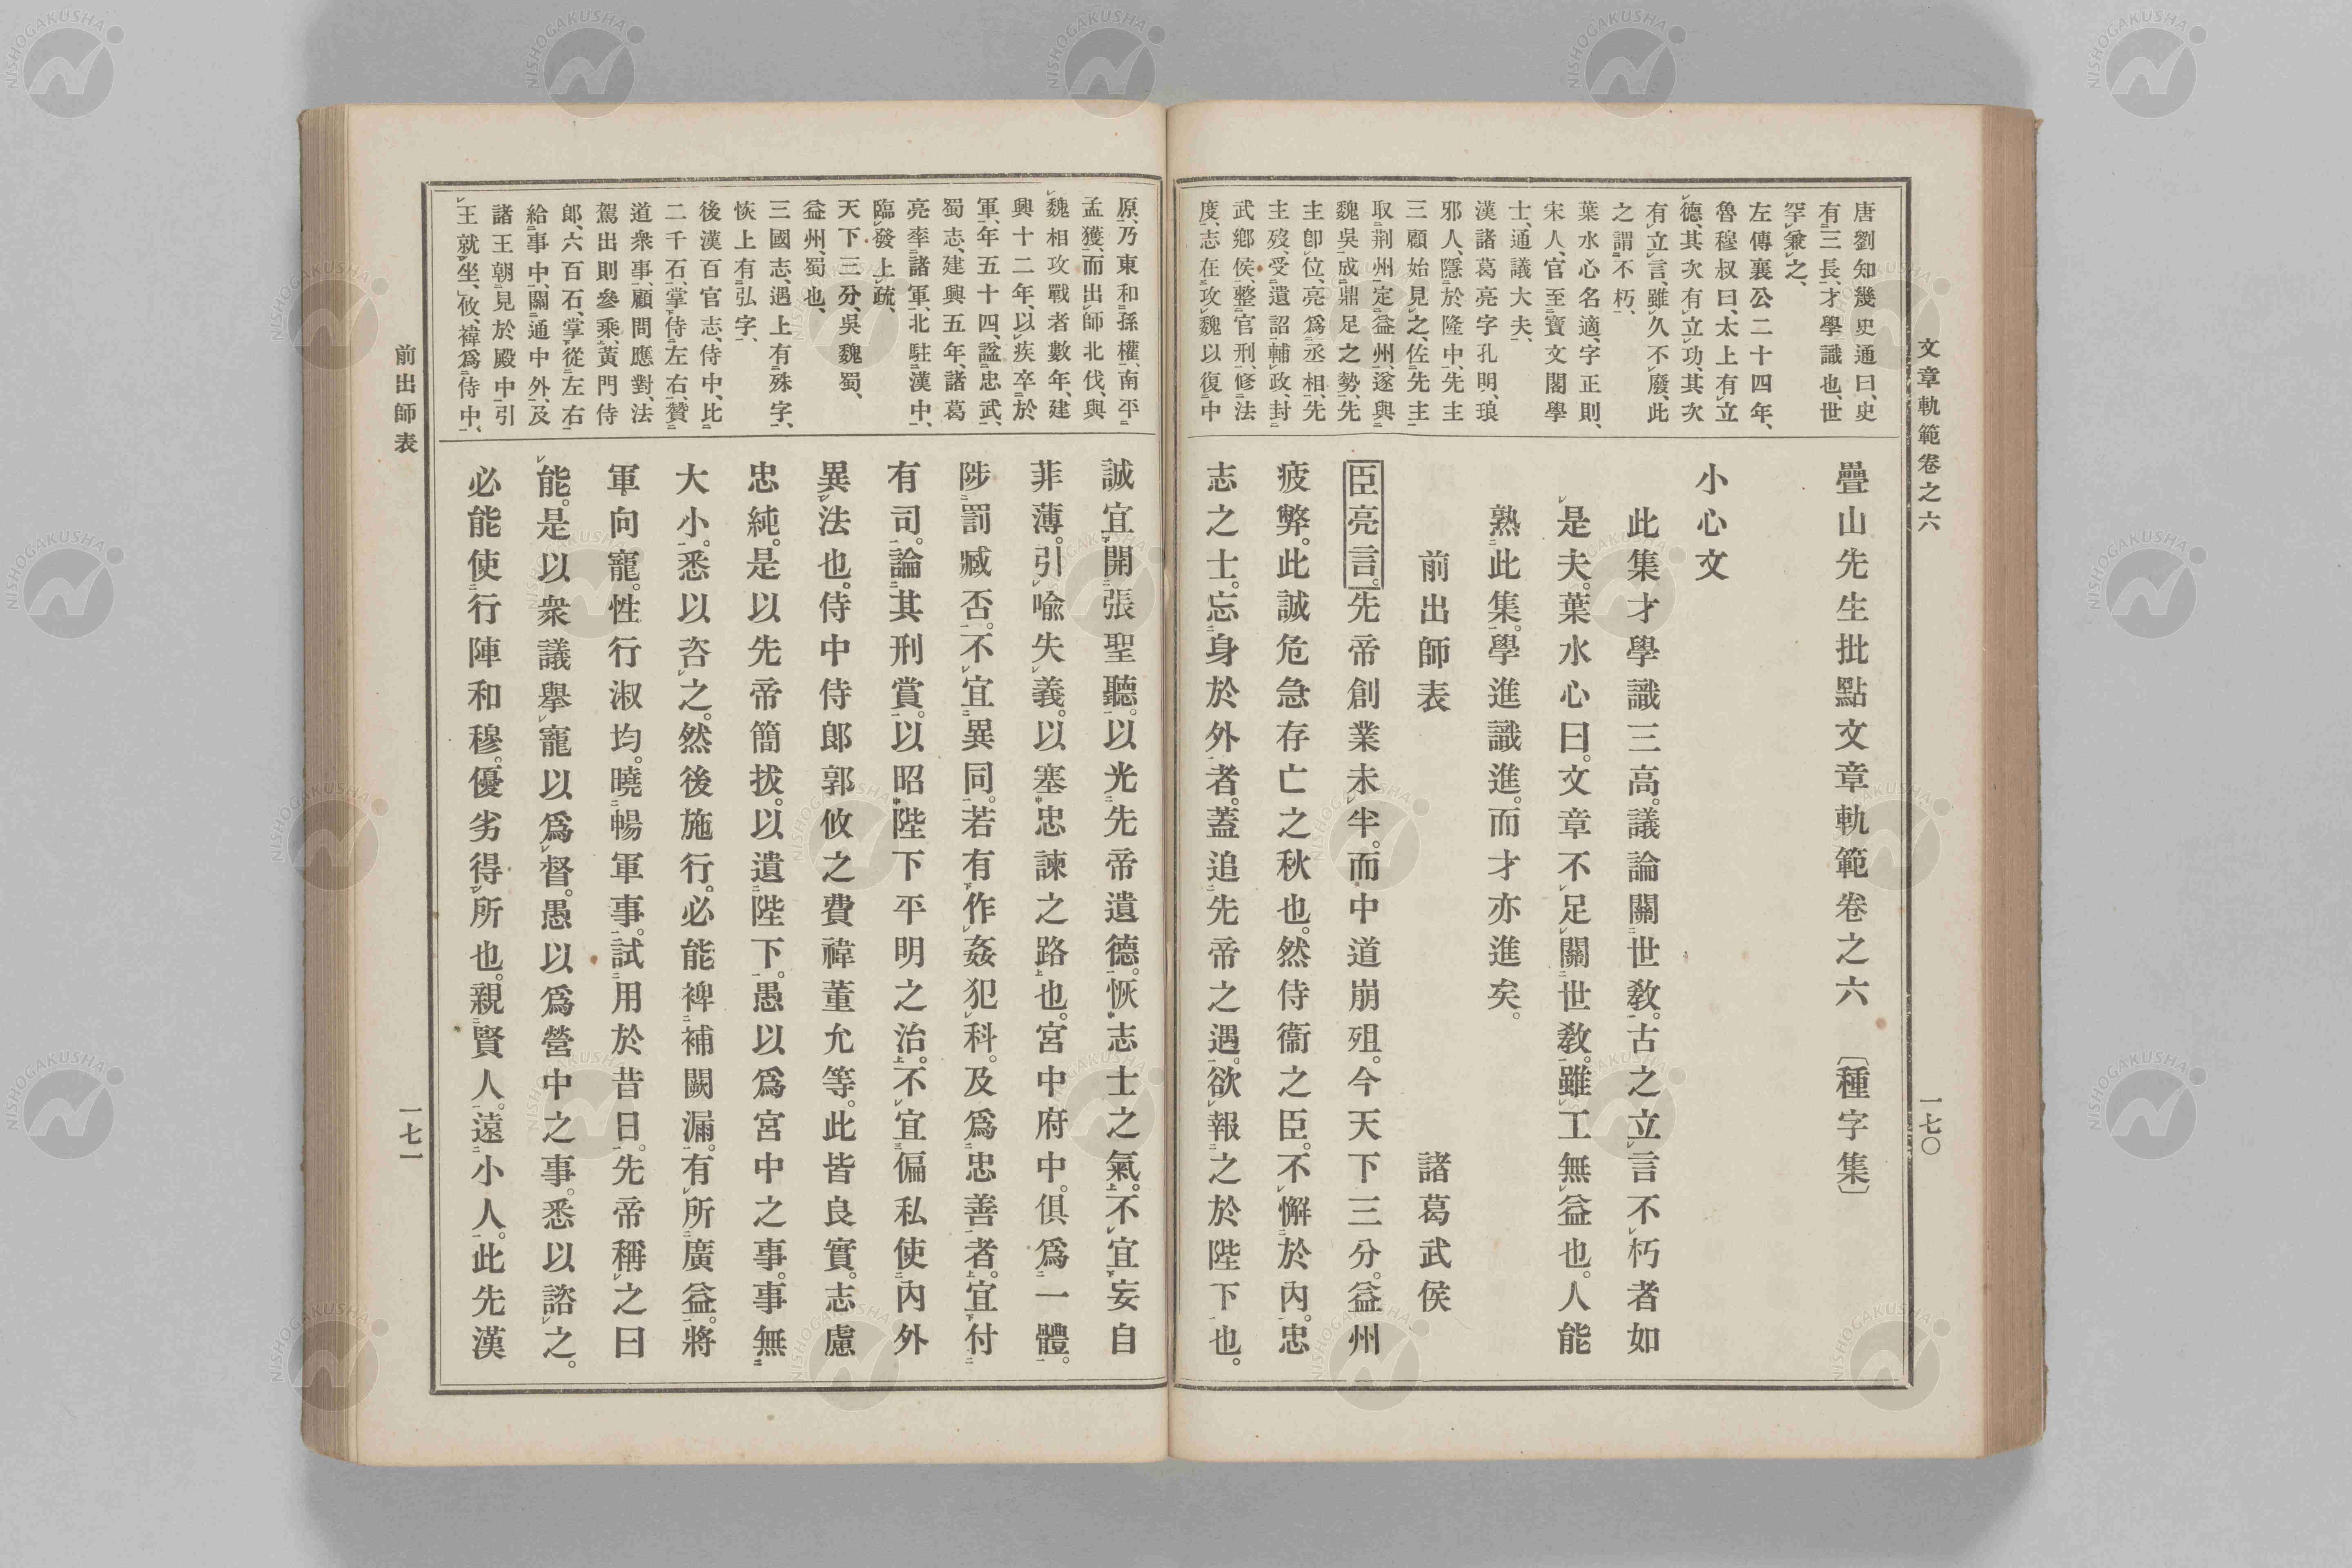 文章軌範卷之六
一七〇
唐劉知幾史通曰、史
有三長、才學識也、世
罕兼之、
左傳襄公二十四年、
魯穆叔曰、太上有立
德、其次有立功、其次
有立言、雖久不廢、此
之謂不朽、
葉水心名適、字正則、
宋人、官至寶文閣學
士、通議大夫、
漢諸葛亮字孔明、琅
邪人、隱於隆中、先主
三顧始見之、佐先主
取荆州、定益州、遂與
魏吳成鼎足之勢、先
主卽位、亮爲丞相、先
主歿、受遺詔輔政、封
武鄕侯、整官刑、修法
度、志在攻魏以復中
疊山先生批點文章軌範卷之六 〔種字集〕
小心文
此集才學識三高。議論關世敎。古之立言不朽者如
是夫。葉水心曰。文章不足關世敎。雖工無益也。人能
熟此集。學進識進。而才亦進矣。
前出師表 諸葛武侯
臣亮言。先帝創業未半。而中道崩殂。今天下三分。益州
疲弊。此誠危急存亡之秋也。然侍衞之臣。不懈於內。忠
志之士。忘身於外者。蓋追先帝之遇。欲報之於陛下也。
原、乃東和孫權、南平
孟獲、而出師北伐、與
魏相攻戰者數年、建
興十二年、以疾卒於
軍、年五十四、諡忠武、
蜀志、建興五年、諸葛
亮率諸軍、北駐漢中、
臨發上疏、
天下三分、吳魏蜀、
益州、蜀也、
三國志、遇上有殊字、
恢上有弘字、
後漢百官志、侍中、比
二千石、掌侍左右、贊
道衆事、顧問應對、法
駕出則參乘、黃門侍
郎、六百石、掌從左右
給事中、關通中外、及
諸王朝見於殿中、引
王就坐、攸、褘爲侍中、
誠宜開張聖聽。以光先帝遺德。恢志士之氣。不宜妄自
非薄。引喩失義。以塞忠諫之路也。宮中府中。俱爲一體。
陟罰臧否。不宜異同。若有作姦犯科。及爲忠善者。宜付
有司。論其刑賞。以昭陛下平明之治。不宜偏私使內外
異法也。侍中侍郎郭攸之費褘董允等。此皆良實。志慮
忠純。是以先帝簡拔。以遺陛下。愚以爲宮中之事。事無
大小。悉以咨之。然後施行。必能裨補闕漏。有所廣益。將
軍向寵。性行淑均。曉暢軍事。試用於昔日。先帝稱之曰
能。是以衆議擧寵以爲督。愚以爲營中之事。悉以諮之。
必能使行陣和穆。優劣得所也。親賢人。遠小人。此先漢
前出師表
一七一